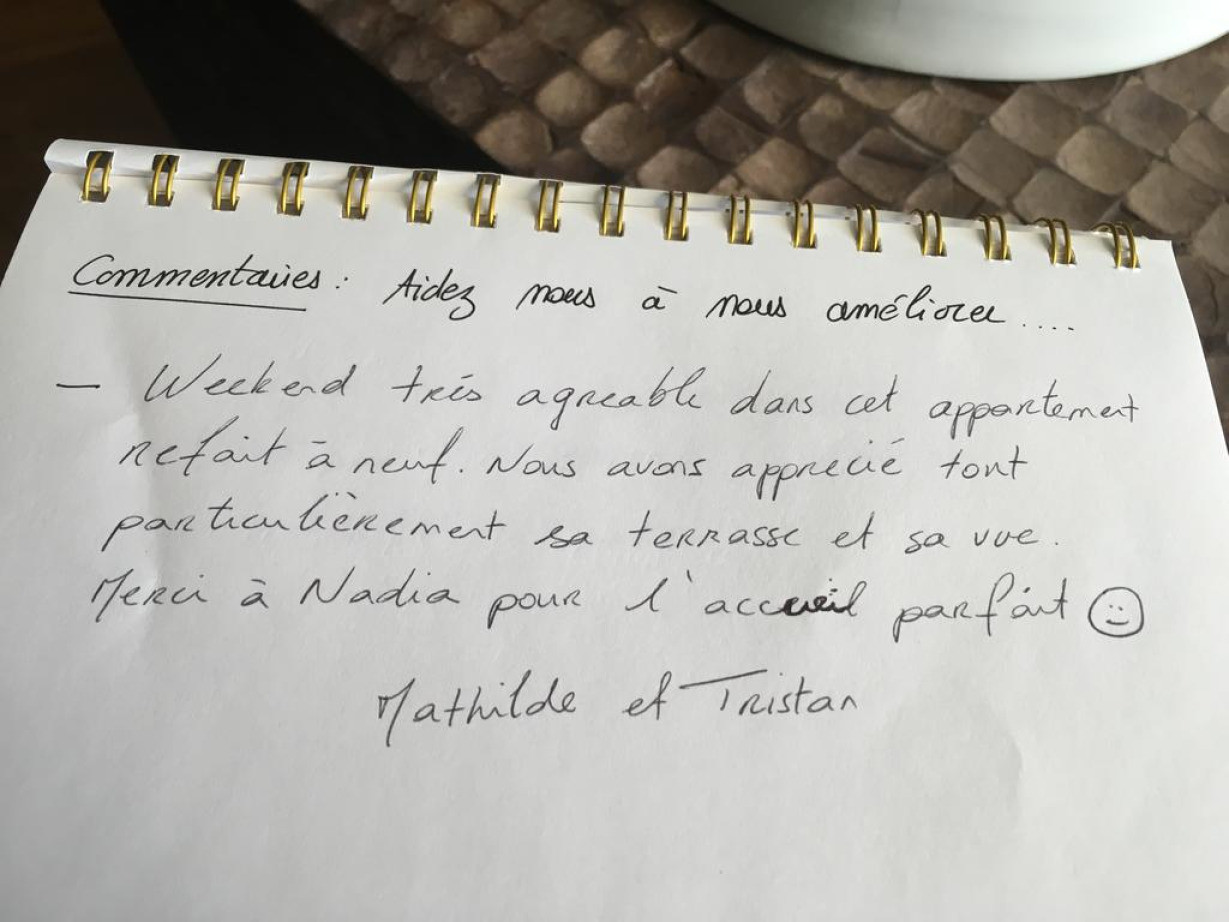 Commentaires : Aidez nous à nous améliorer ....
— Weekend très agreable dans cet appartement
refait à neuf. Nous avons apprécié tout
particulièrement sa terrasse et sa vue.
Merci à Nadia pour l'accueil parfait ☺
Mathilde et Tristan